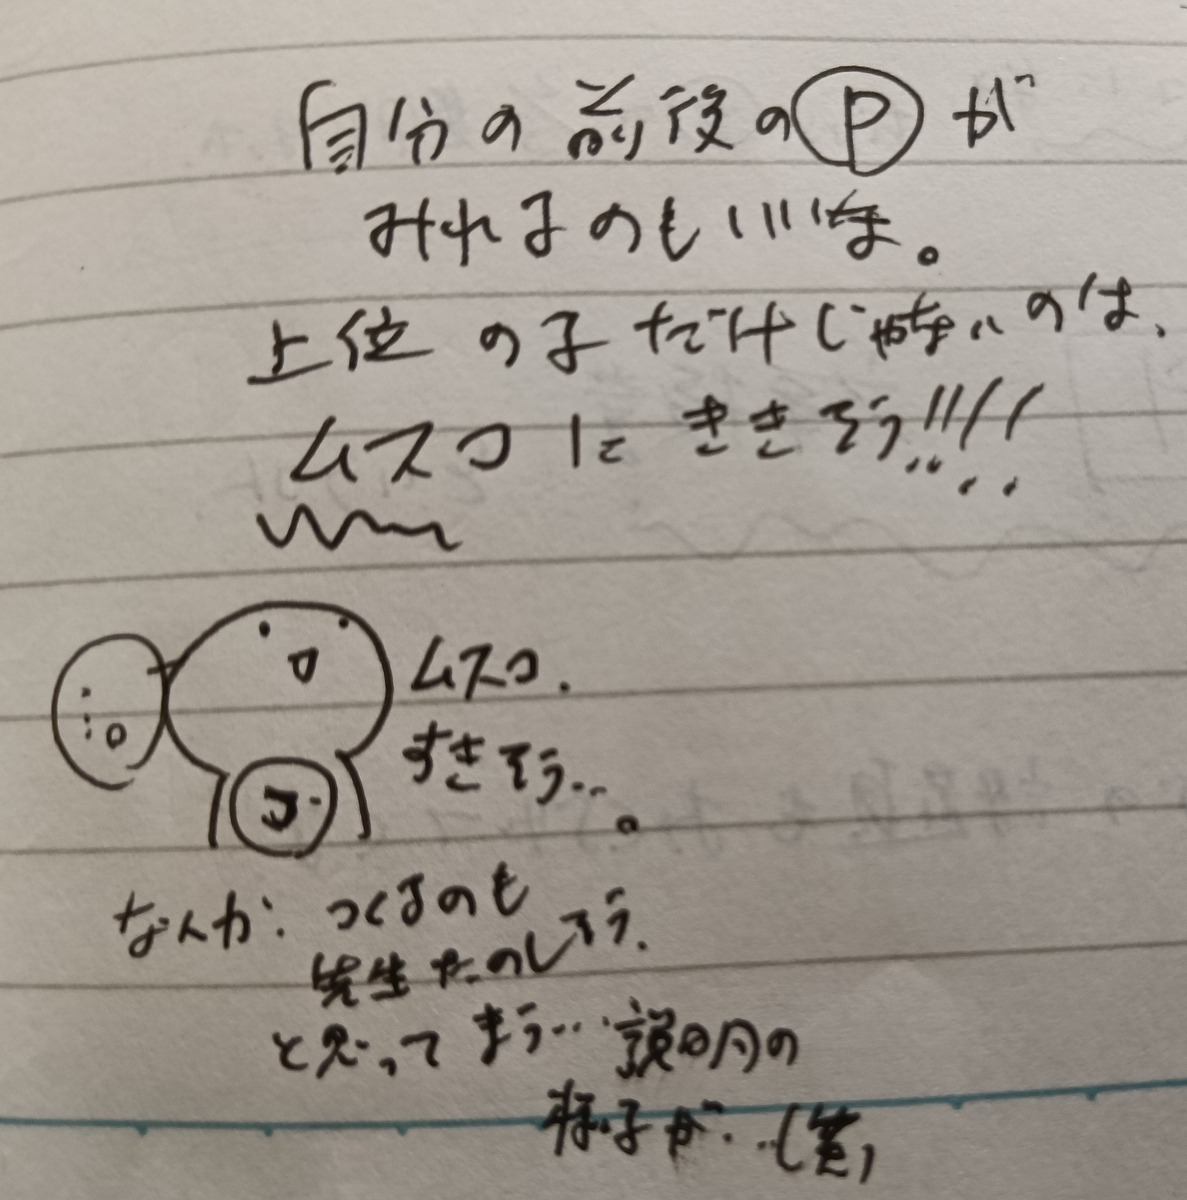 自分の前後のⓅが
みれるのもいいな。
上位の子だけじゃないのは、
ムスコにききそう!!!!
ムスコ.
すきそう…。
なんか: つくるのも
先生たのしそう.
と思ってまう… 説明の
様子が…(笑)